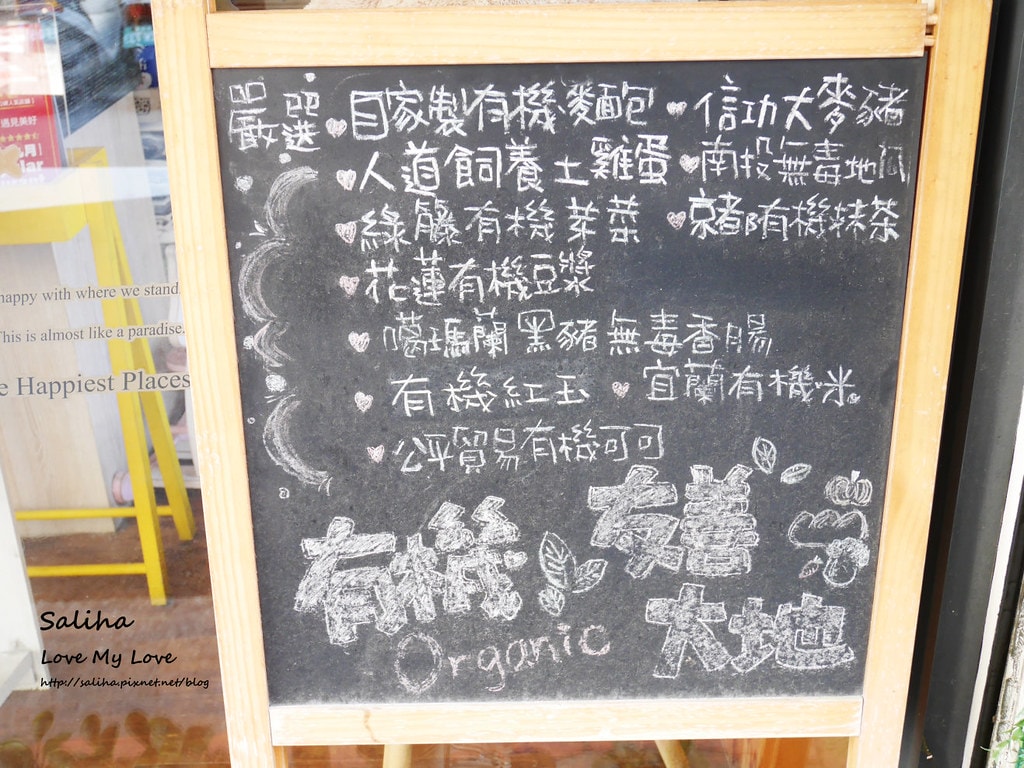 嚴選
吧
自家製有機麵包
信功大麥豬
人道飼養土雞蛋
南投無毒地瓜
綠藤有機芽菜
京都有機抹茶
花蓮有機豆漿
噶瑪蘭黑豬無毒香腸
有機紅玉
宜蘭有機米
公平貿易有機可可
有機
友善
大地
Organic
happy with where we stand.
This is almost like a paradise.
e Happiest Places
遇見美好
Saliha
Love My Love
http://saliha.pixnet.net/blog